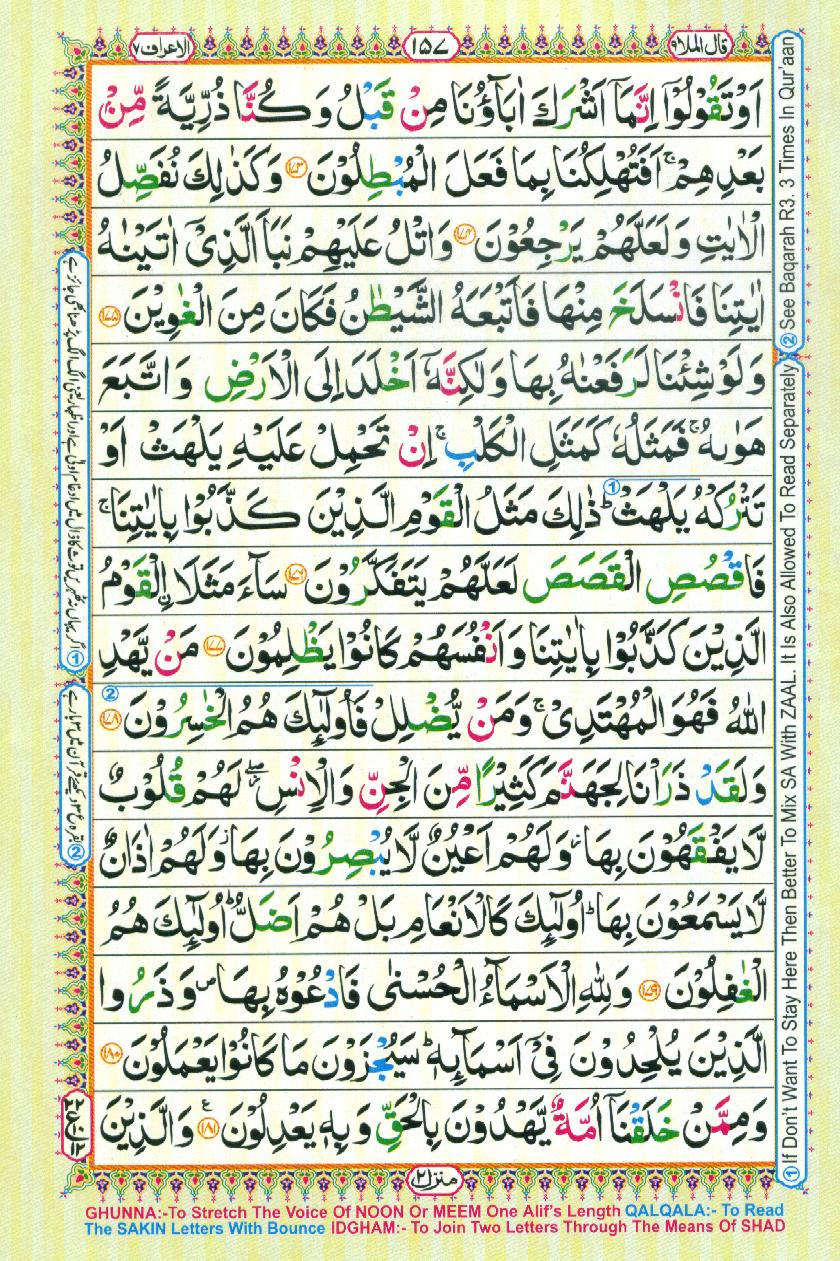 قال الملا ٩
١٥٧
الاعراف ٧
اَوْ تَقُوْلُوْۤا اِنَّمَاۤ اَشْرَكَ اٰبَآؤُنَا مِنْ قَبْلُ وَ كُنَّا ذُرِّيَّةً مِّنْۢ
بَعْدِهِمْ ۚ اَفَتُهْلِكُنَا بِمَا فَعَلَ الْمُبْطِلُوْنَ ﴿۱۷۳﴾ وَكَذٰلِكَ نُفَصِّلُ
الْاٰيٰتِ وَ لَعَلَّهُمْ يَرْجِعُوْنَ ﴿۱۷۴﴾ وَاتْلُ عَلَيْهِمْ نَبَاَ الَّذِىْۤ اٰتَيْنٰهُ
اٰيٰتِنَا فَانْسَلَخَ مِنْهَا فَاَتْبَعَهُ الشَّيْطٰنُ فَكَانَ مِنَ الْغٰوِيْنَ ﴿۱۷۵﴾
وَلَوْ شِئْنَا لَرَفَعْنٰهُ بِهَا وَلٰكِنَّهٗۤ اَخْلَدَ اِلَى الْاَرْضِ وَ اتَّبَعَ
هَوٰىهُ ۚ فَمَثَلُهٗ كَمَثَلِ الْكَلْبِ ۚ اِنْ تَحْمِلْ عَلَيْهِ يَلْهَثْ اَوْ
تَتْرُكْهُ يَلْهَثْ ① ؕ ذٰلِكَ مَثَلُ الْقَوْمِ الَّذِيْنَ كَذَّبُوْا بِاٰيٰتِنَا ۚ
فَاقْصُصِ الْقَصَصَ لَعَلَّهُمْ يَتَفَكَّرُوْنَ ﴿۱۷۶﴾ سَآءَ مَثَلَا اۨلْقَوْمُ
الَّذِيْنَ كَذَّبُوْا بِاٰيٰتِنَا وَ اَنْفُسَهُمْ كَانُوْا يَظْلِمُوْنَ ﴿۱۷۷﴾ مَنْ يَّهْدِ
اللّٰهُ فَهُوَ الْمُهْتَدِىْ ۚ وَمَنْ يُّضْلِلْ فَاُولٰٓئِكَ هُمُ الْخٰسِرُوْنَ ② ﴿۱۷۸﴾
وَلَقَدْ ذَرَاْنَا لِجَهَنَّمَ كَثِيْرًا مِّنَ الْجِنِّ وَالْاِنْسِ ۖ لَهُمْ قُلُوْبٌ
لَّا يَفْقَهُوْنَ بِهَا ؗ وَلَهُمْ اَعْيُنٌ لَّا يُبْصِرُوْنَ بِهَا ؗ وَلَهُمْ اٰذَانٌ
لَّا يَسْمَعُوْنَ بِهَا ؕ اُولٰٓئِكَ كَالْاَنْعَامِ بَلْ هُمْ اَضَلُّ ؕ اُولٰٓئِكَ هُمُ
الْغٰفِلُوْنَ ﴿۱۷۹﴾ وَلِلّٰهِ الْاَسْمَآءُ الْحُسْنٰى فَادْعُوْهُ بِهَا ۪ وَ ذَرُوا
الَّذِيْنَ يُلْحِدُوْنَ فِىْۤ اَسْمَآئِهٖ ؕ سَيُجْزَوْنَ مَا كَانُوْا يَعْمَلُوْنَ ﴿۱۸۰﴾
وَمِمَّنْ خَلَقْنَاۤ اُمَّةٌ يَّهْدُوْنَ بِالْحَقِّ وَ بِهٖ يَعْدِلُوْنَ ﴿۱۸۱﴾ ؏ وَالَّذِيْنَ
منزل ٢
① If Don't Want To Stay Here Then Better To Mix SA With ZAAL. It Is Also Allowed To Read Separately
② See Baqarah R3. 3 Times In Qur'aan
GHUNNA:-To Stretch The Voice Of NOON Or MEEM One Alif's Length QALQALA:- To Read
The SAKIN Letters With Bounce IDGHAM:- To Join Two Letters Through The Means Of SHAD